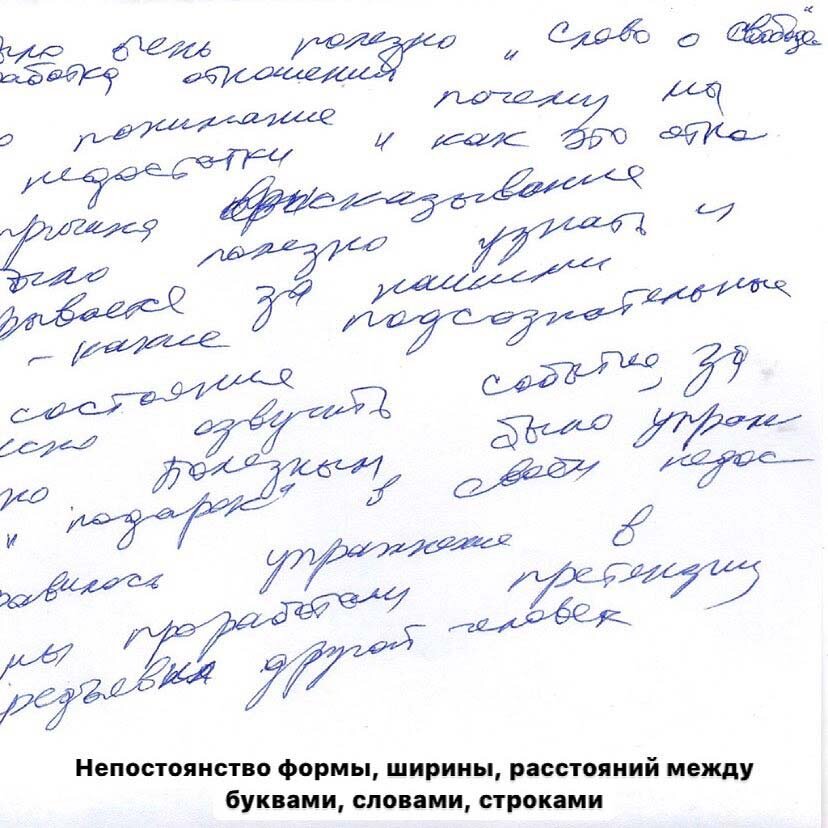 ыло очень полезно „Слово о свободе"
работка отношений
о понимание почему мы
недостатки и как это отра
причина высказывание
было полезно узнать и
зывается за нашими
- какие подсознательные
состояния
еско озвучить события, за
но полезным было упраж
"подарок" в своей недос
равилось упражнение в
мы проработали претензии
редъявил другой человек
Непостоянство формы, ширины, расстояний между
буквами, словами, строками